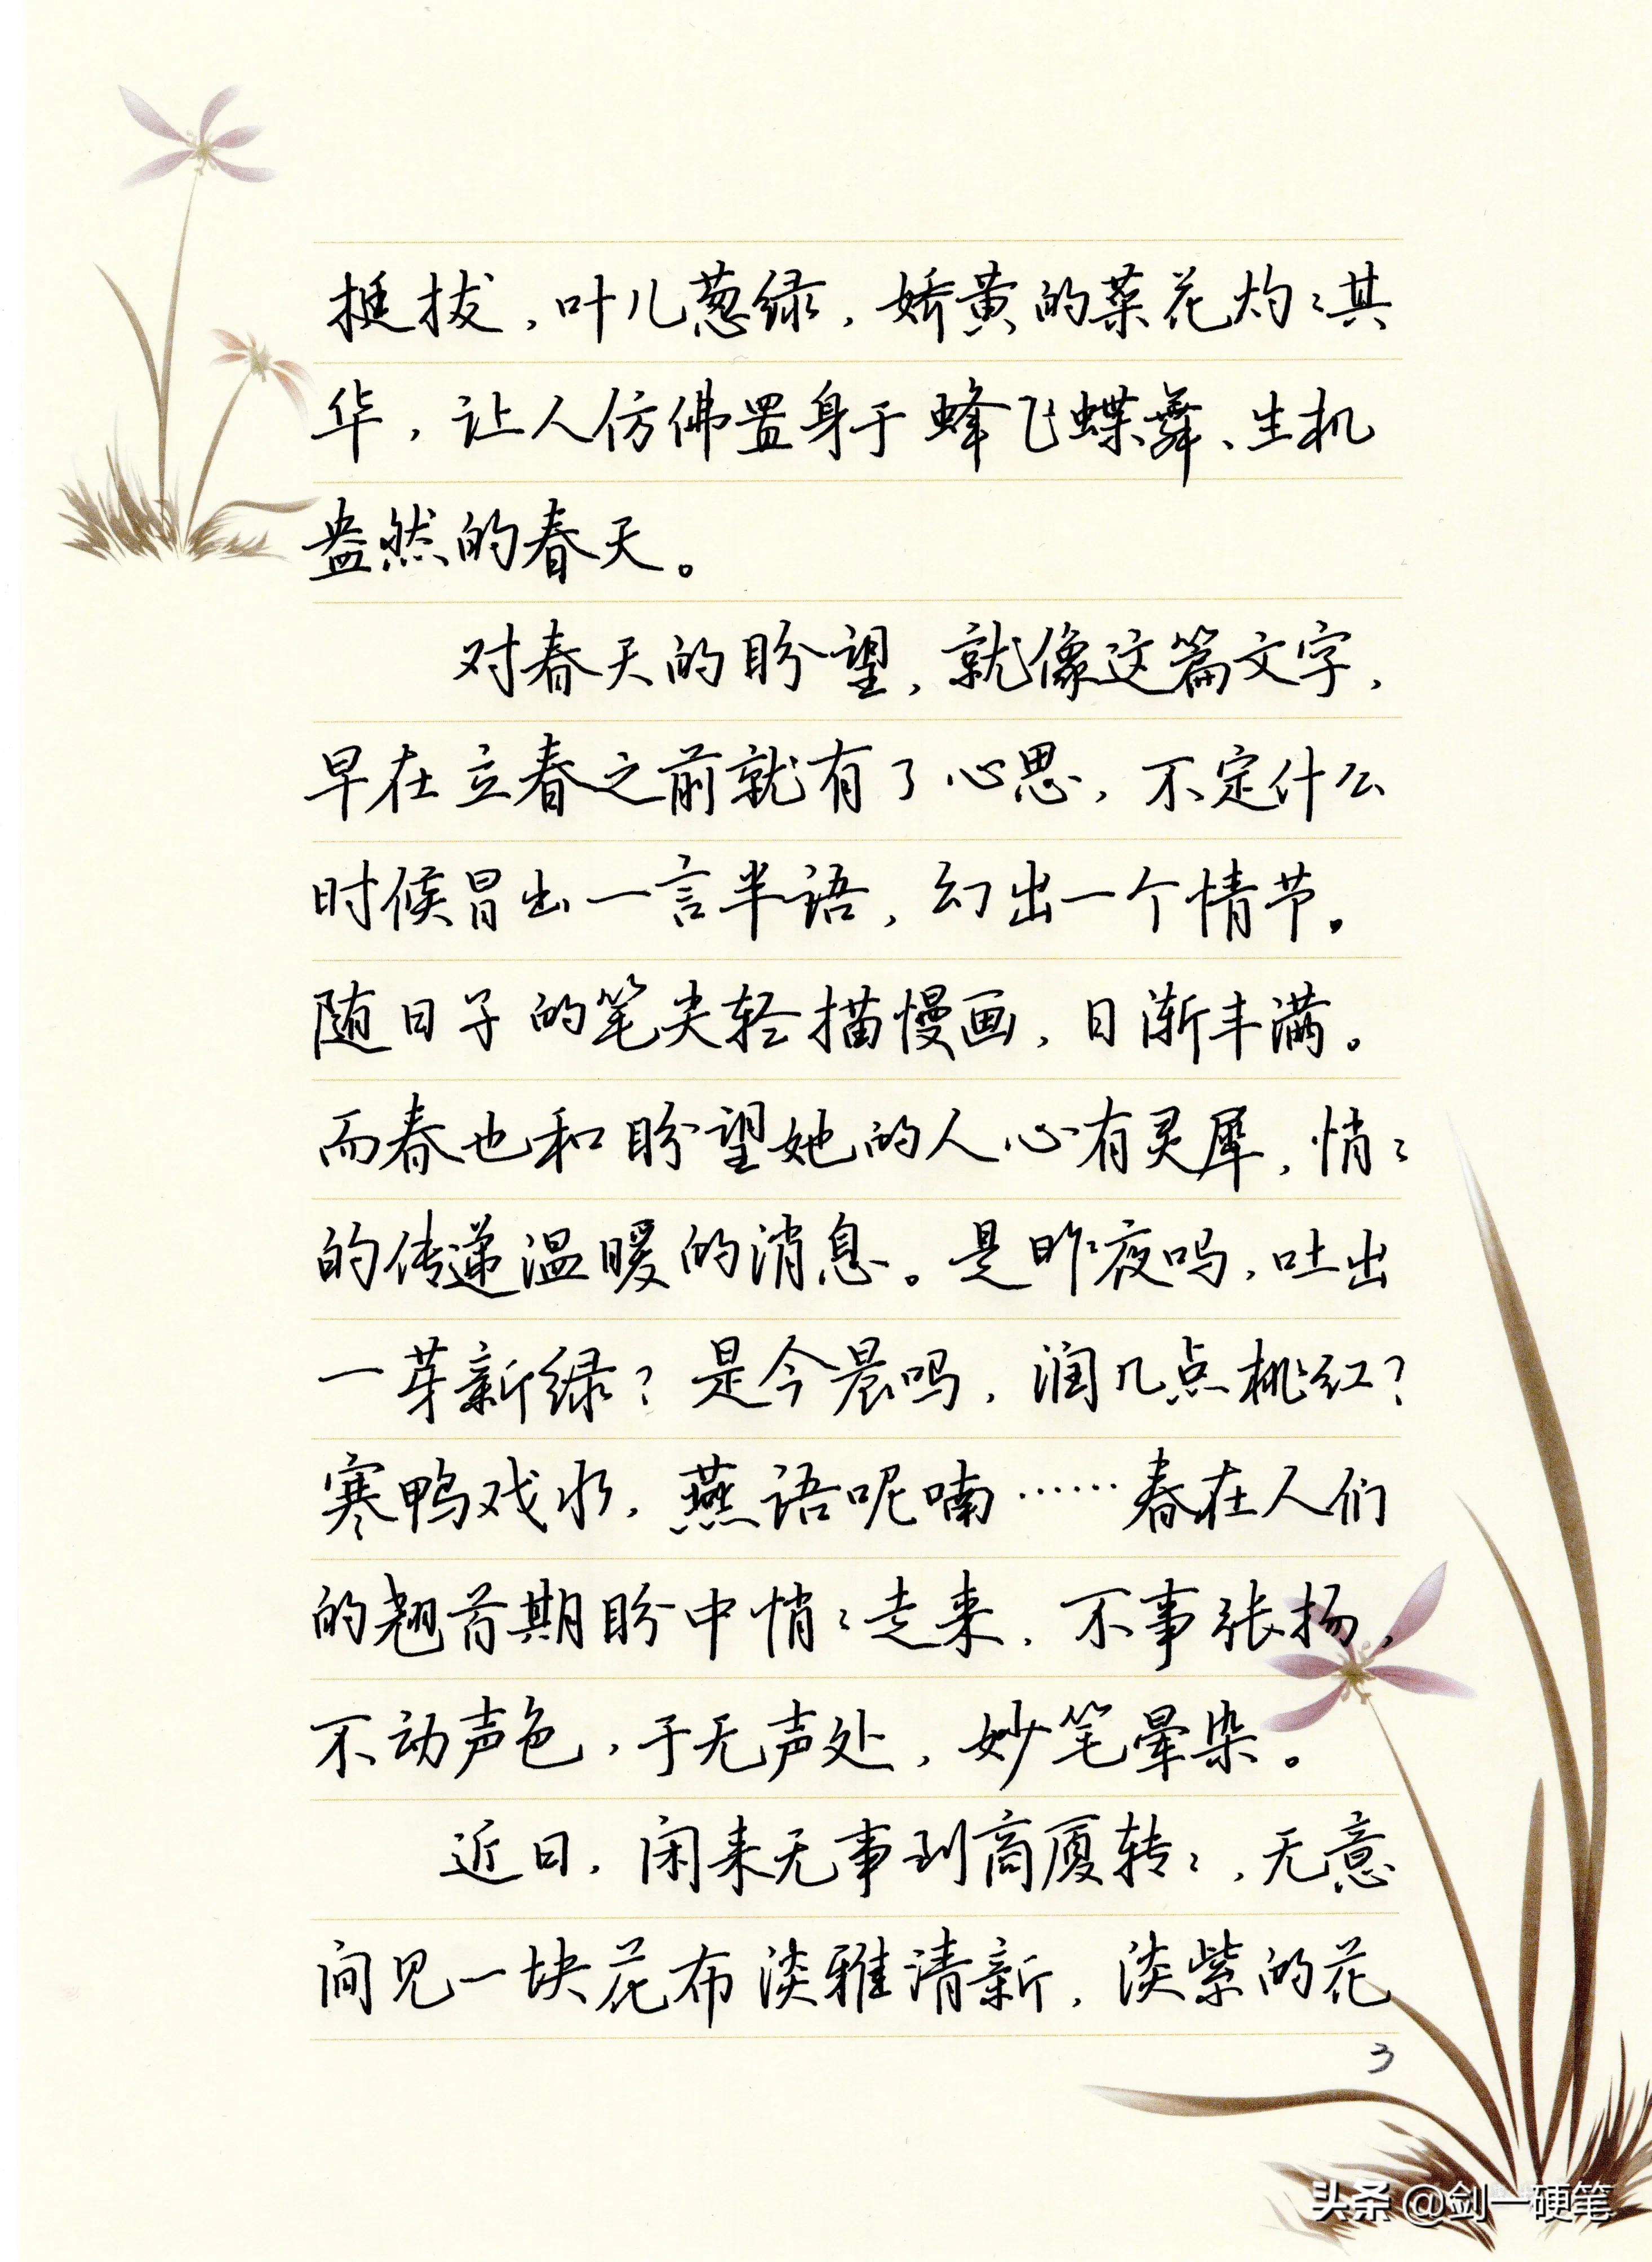 挺拔，叶儿葱绿，娇黄的菜花灼灼其
华，让人仿佛置身于蜂飞蝶舞、生机
盎然的春天。
对春天的盼望，就像这篇文字，
早在立春之前就有了心思，不定什么
时候冒出一言半语，幻出一个情节。
随日子的笔尖轻描慢画，日渐丰满。
而春也和盼望她的人心有灵犀，悄悄
的传递温暖的消息。是昨夜吗，吐出
一芽新绿？是今晨吗，润几点桃红？
寒鸭戏水，燕语呢喃……春在人们
的翘首期盼中悄悄走来，不事张扬，
不动声色，于无声处，妙笔晕染。
近日，闲来无事到商厦转转，无意
间见一块花布淡雅清新，淡紫的花
3
头条 @剑一硬笔